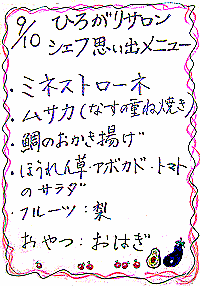 9/10 ひろがりサロン
シェフ思い出メニュー
・ミネストローネ
・ムサカ(なすの重ね焼き)
・鯛のおかき揚げ
・ほうれん草・アボカド・トマト
のサラダ
・フルーツ:梨
おやつ:おはぎ